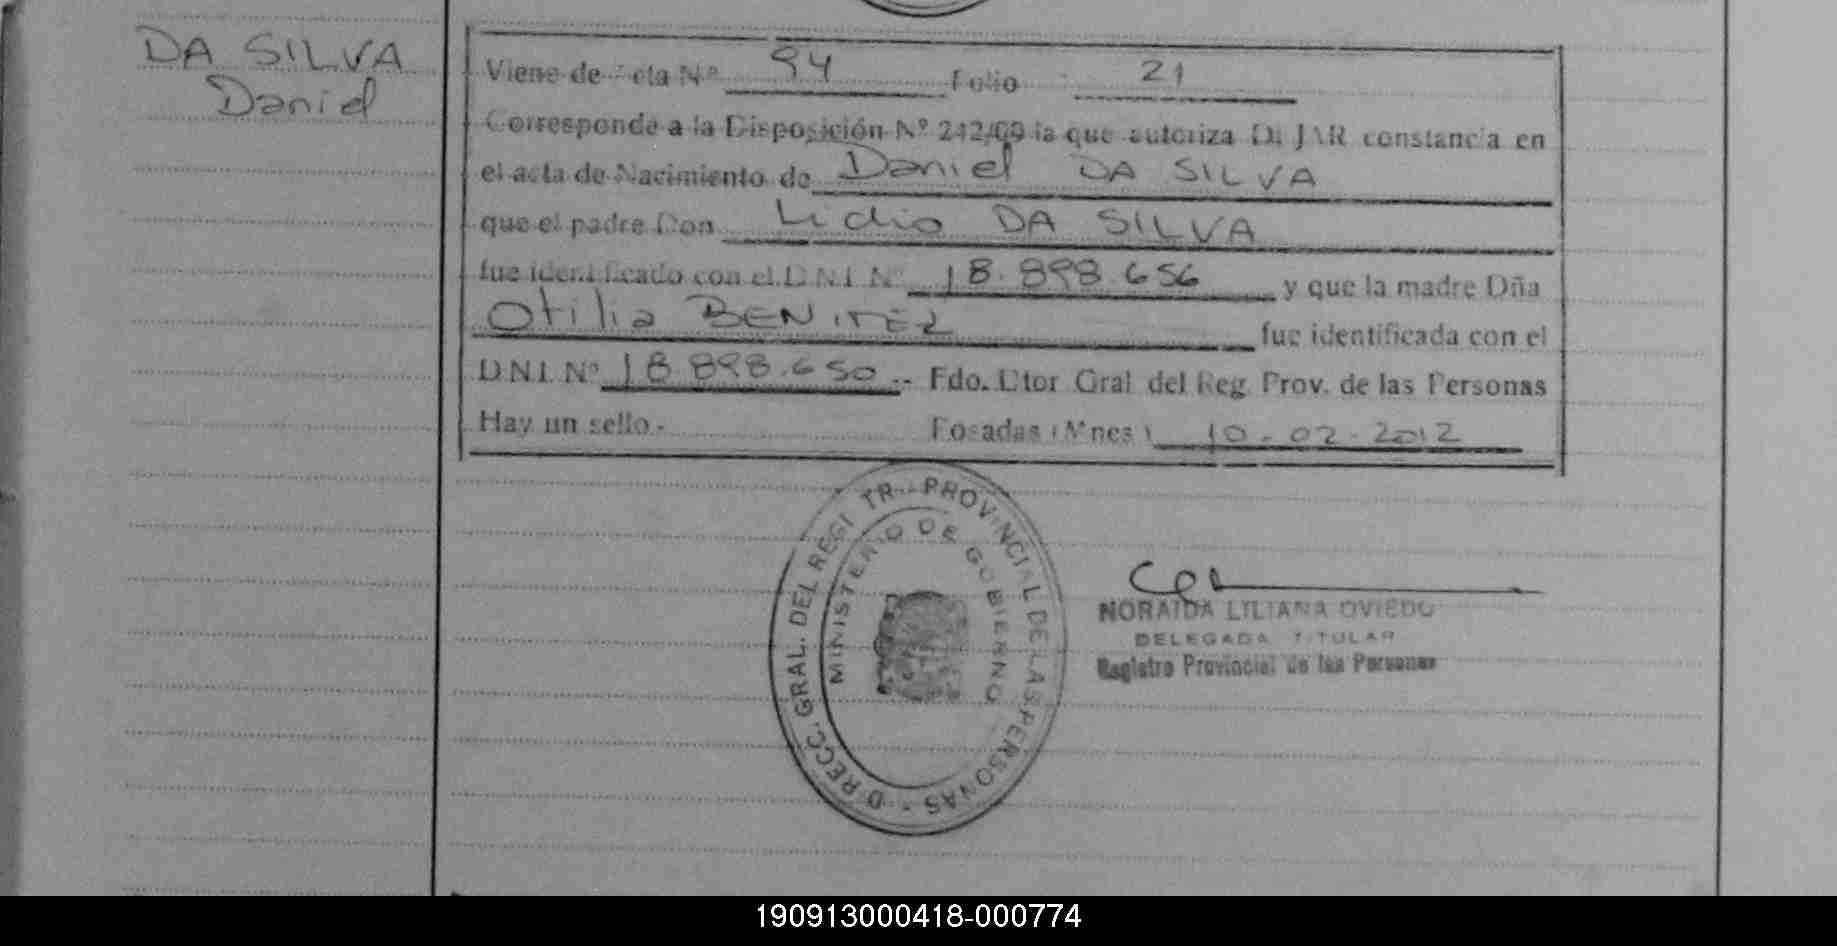 DA SILVA
Daniel
Viene de Acta Nº 94 Folio 21
Corresponde a la Disposición Nº 242/09 la que autoriza DEJAR constancia en
el acta de Nacimiento de Daniel DA SILVA
que el padre Don Lidio DA SILVA
fue identificado con el D.N.I. Nº 18.898.656 y que la madre Dña
Otilia BENITEZ fue identificada con el
D.N.I. Nº 18.898.650.- Fdo. Dtor Gral del Reg. Prov. de las Personas
Hay un sello.- Posadas (Mnes) 10-02-2012
DIRECC. GRAL. DEL REGISTRO PROVINCIAL DE LAS PERSONAS
MINISTERIO DE GOBIERNO
NORAIDA LILIANA OVIEDO
DELEGADA TITULAR
Registro Provincial de las Personas
190913000418-000774